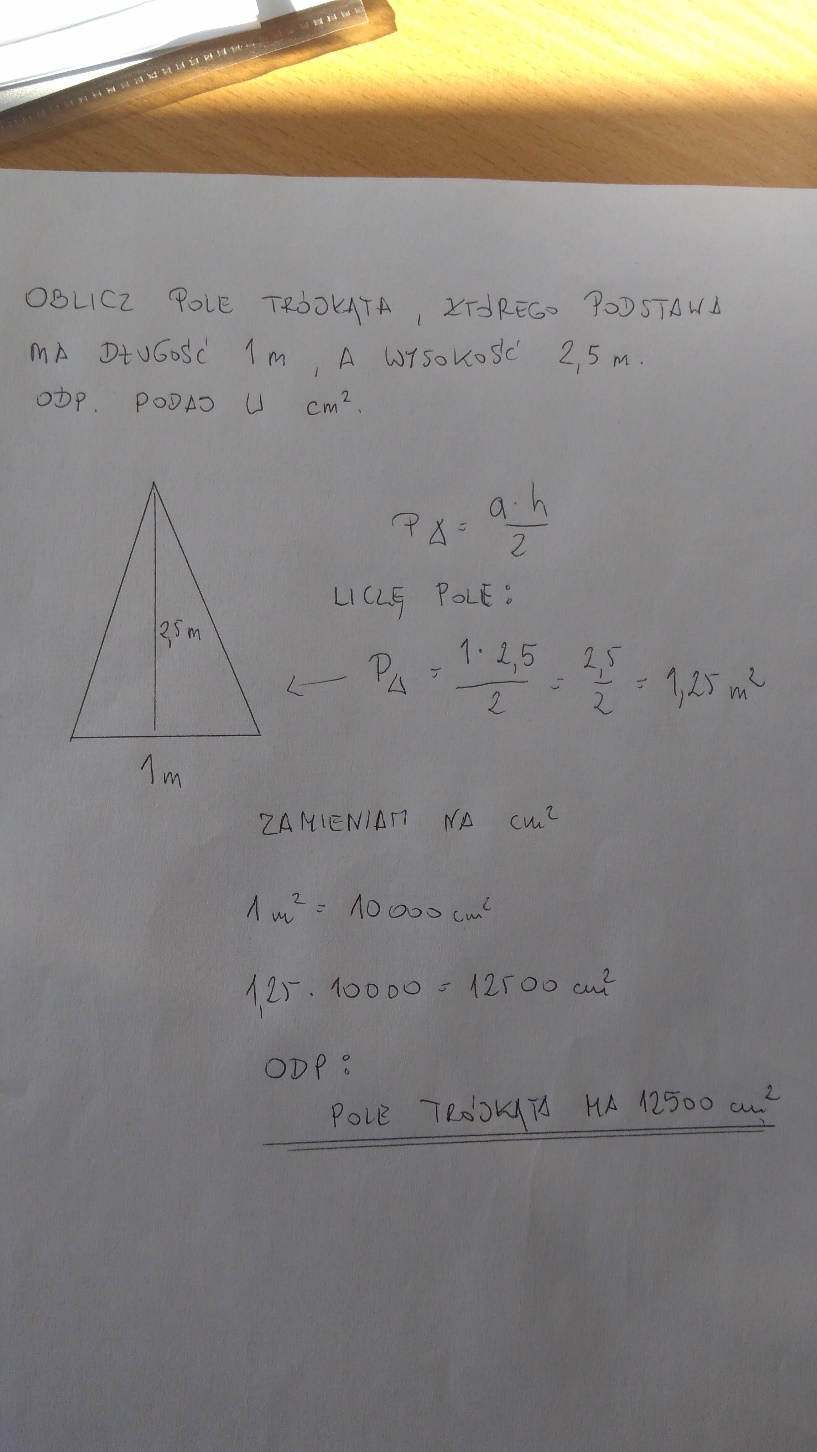 OBLICZ POLE TRÓJKĄTA, KTÓREGO PODSTAWA
MA DŁUGOŚĆ 1 m, A WYSOKOŚĆ 2,5 m.
ODP. PODAJ W cm².
P△ = a · h / 2
LICZĘ POLE:
2,5 m
P△ = 1 · 2,5 / 2 = 2,5 / 2 = 1,25 m²
1 m
ZAMIENIAM NA cm²
1 m² = 10 000 cm²
1,25 · 10000 = 12500 cm²
ODP:
POLE TRÓJKĄTA MA 12500 cm²